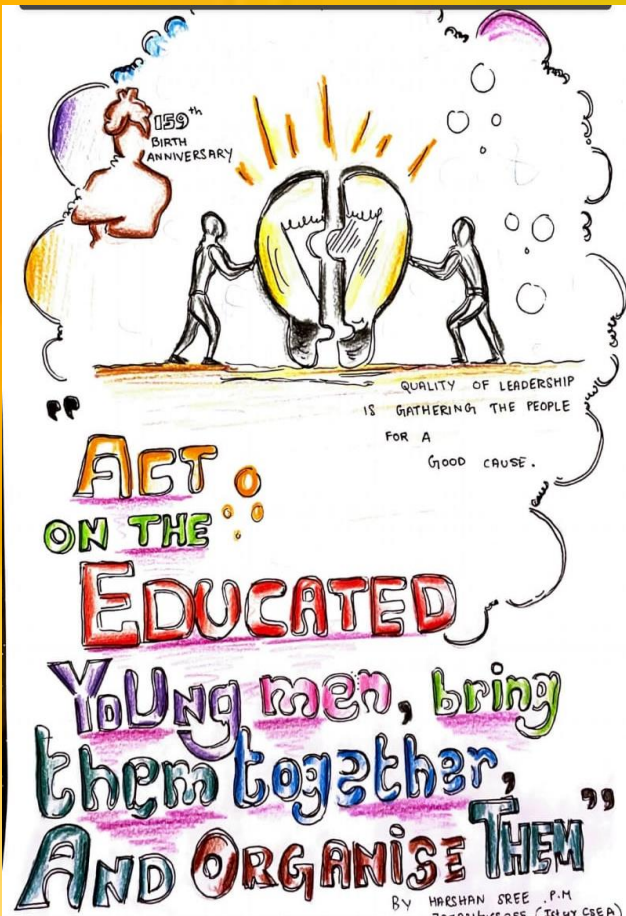 159th
BIRTH
ANNIVERSARY
QUALITY OF LEADERSHIP
IS GATHERING THE PEOPLE
FOR A
GOOD CAUSE.
"ACT
ON THE
EDUCATED
YOUNG men, bring
them together,
AND ORGANISE THEM"
BY HARSHAN SREE .P.M
(Ist yr CSE A)